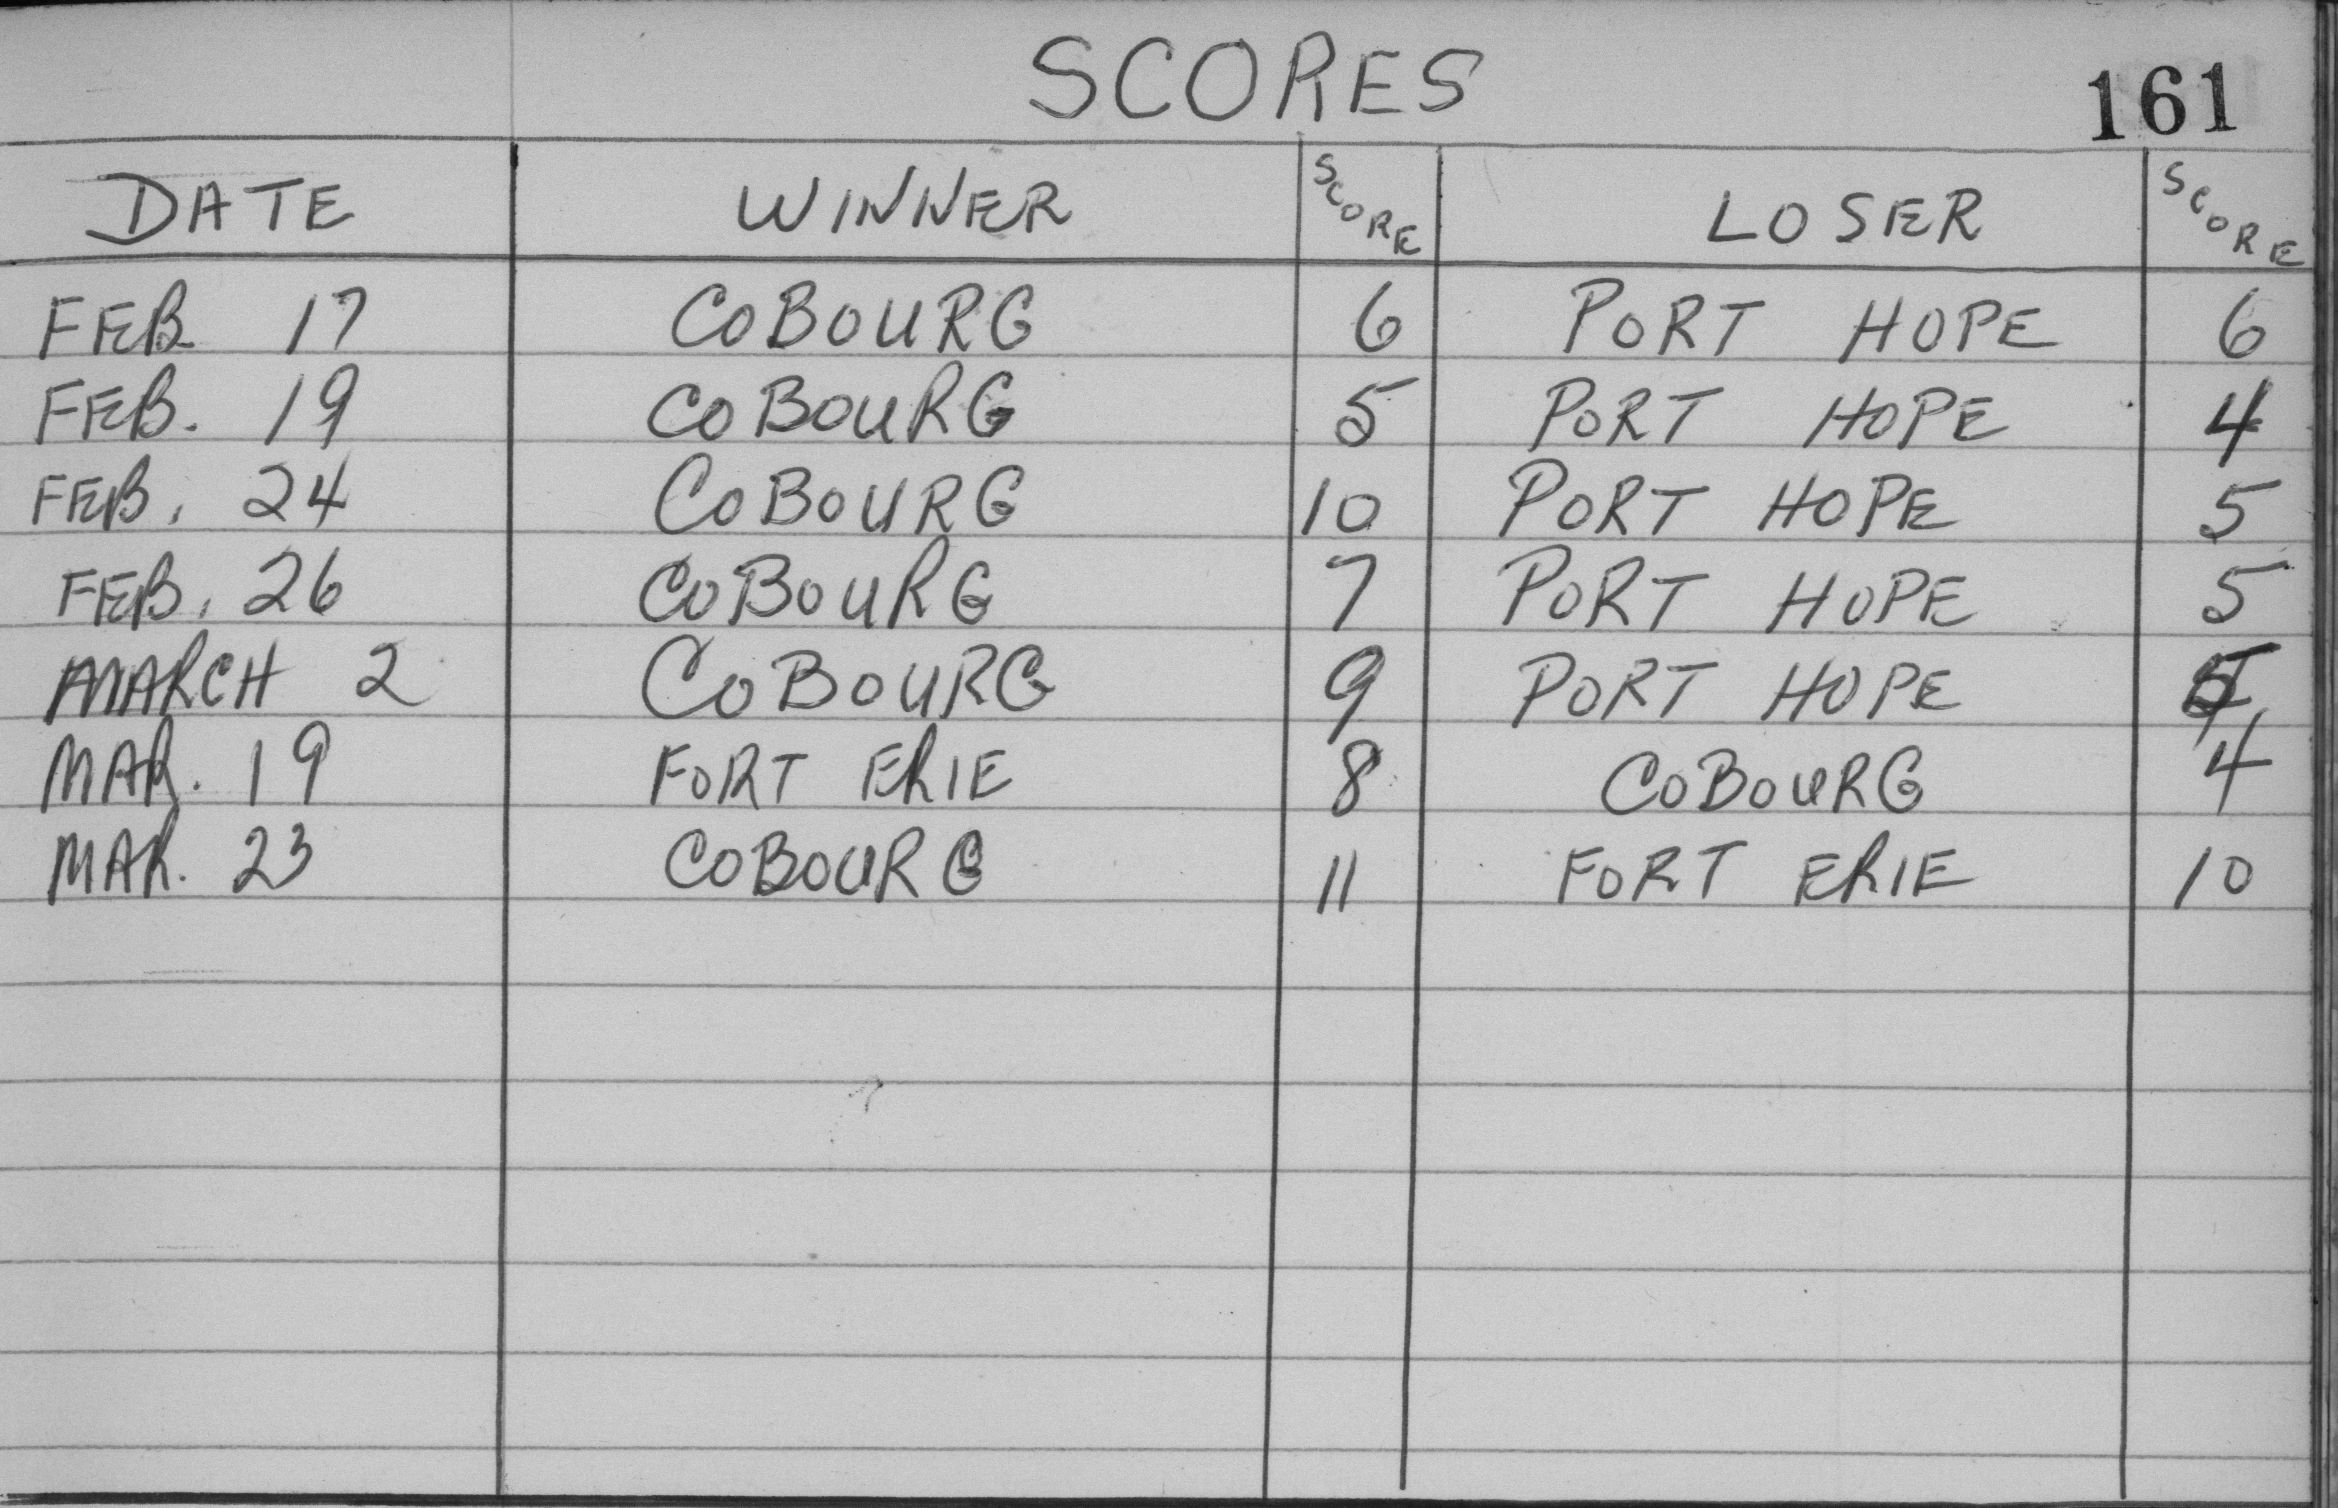 SCORES
161
DATE WINNER SCORE LOSER SCORE
FEB. 17 COBOURG 6 PORT HOPE 6
FEB. 19 COBOURG 5 PORT HOPE 4
FEB. 24 COBOURG 10 PORT HOPE 5
FEB. 26 COBOURG 7 PORT HOPE 5
MARCH 2 COBOURG 9 PORT HOPE
MAR. 19 FORT ERIE 8 COBOURG 4
MAR. 23 COBOURG 11 FORT ERIE 10